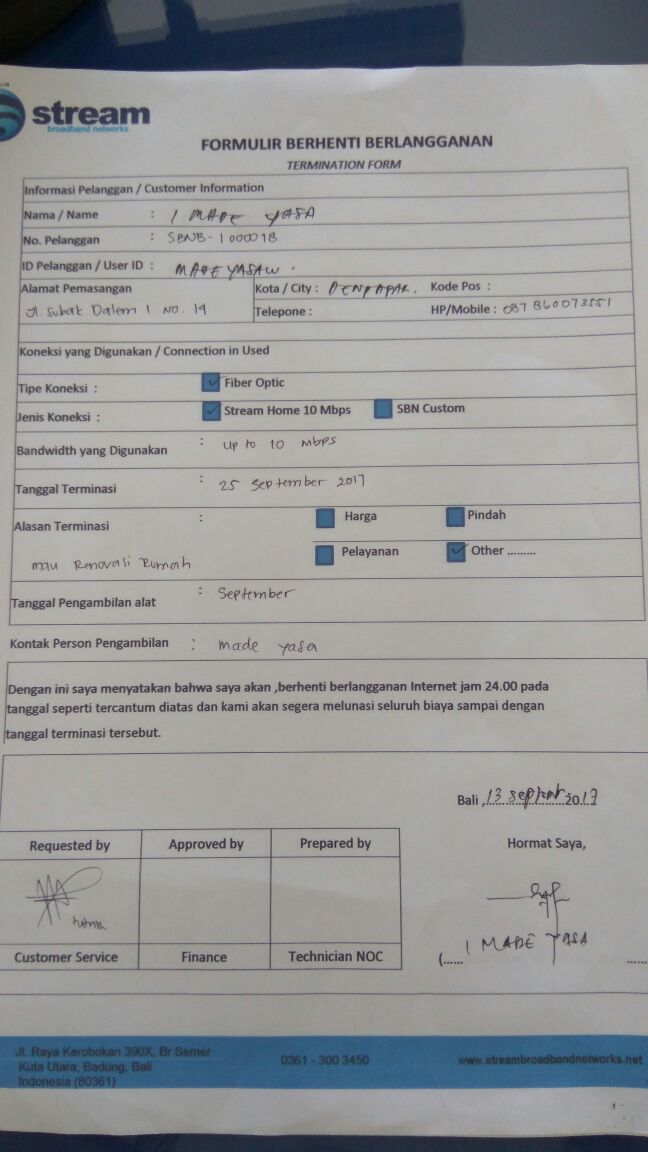 stream
broadband networks
FORMULIR BERHENTI BERLANGGANAN
TERMINATION FORM
Informasi Pelanggan / Customer Information
Nama / Name : I MADE YASA
No. Pelanggan : SBNB-1000018
ID Pelanggan / User ID : MADEYASAW.
Alamat Pemasangan
Jl. Subak Dalem 1 NO. 14
Kota / City : DENPASAR. Kode Pos :
Telepone : HP/Mobile : 087860073551
Koneksi yang Digunakan / Connection in Used
Tipe Koneksi : Fiber Optic
Jenis Koneksi : Stream Home 10 Mbps SBN Custom
Bandwidth yang Digunakan : up to 10 mbps
Tanggal Terminasi : 25 September 2017
Alasan Terminasi : Harga Pindah
mau Renovasi Rumah Pelayanan Other .........
Tanggal Pengambilan alat : September
Kontak Person Pengambilan : made yasa
Dengan ini saya menyatakan bahwa saya akan ,berhenti berlangganan Internet jam 24.00 pada
tanggal seperti tercantum diatas dan kami akan segera melunasi seluruh biaya sampai dengan
tanggal terminasi tersebut.
Bali , 13 2017
Requested by Approved by Prepared by
Hormat Saya,
Customer Service Finance Technician NOC
(...... I MADE YASA ......
Jl. Raya Kerobokan 390X, Br Semer
Kuta Utara, Badung, Bali
Indonesia (80361)
0361 - 300 3450
www.streambroadbandnetworks.net